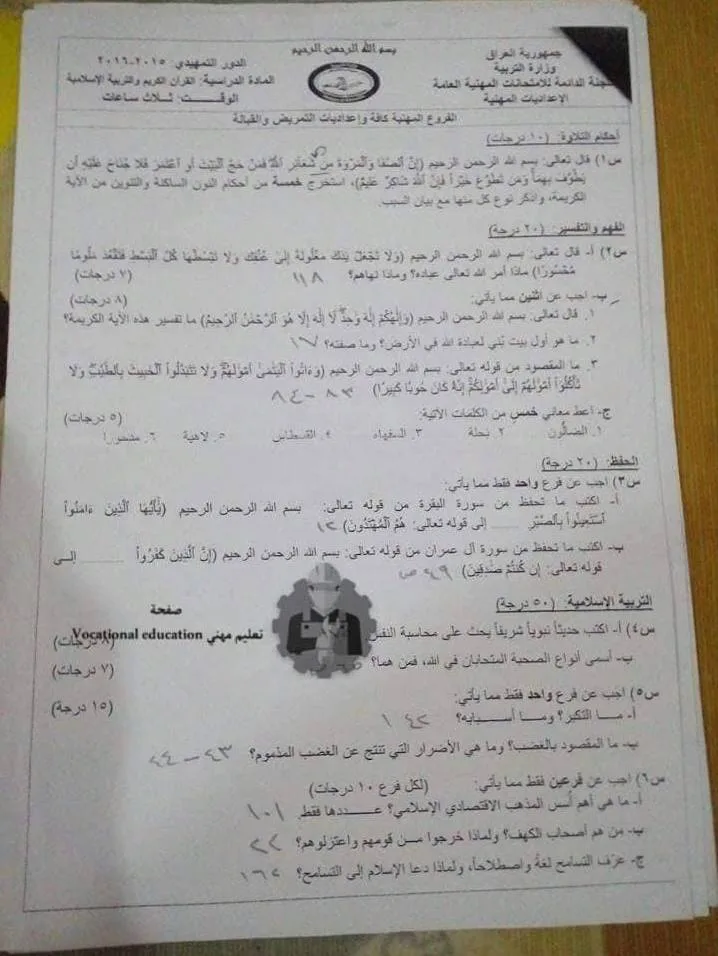 بسم الله الرحمن الرحيم
جمهورية العراق
وزارة التربية
اللجنة الدائمة للامتحانات المهنية العامة
الإعداديات المهنية
الدور التمهيدي: ٢٠١٥-٢٠١٦
المادة الدراسية: القرآن الكريم والتربية الإسلامية
الوقت: ثلاث ساعات
الفروع المهنية كافة وإعداديات التمريض والقبالة
أحكام التلاوة: (١٠ درجات)
س١) قال تعالى: بسم الله الرحمن الرحيم (إِنَّ ٱلصَّفَا وَٱلْمَرْوَةَ مِن شَعَآئِرِ ٱللَّهِ فَمَنْ حَجَّ ٱلْبَيْتَ أَوِ ٱعْتَمَرَ فَلَا جُنَاحَ عَلَيْهِ أَن
يَطَّوَّفَ بِهِمَا وَمَن تَطَوَّعَ خَيْرًا فَإِنَّ ٱللَّهَ شَاكِرٌ عَلِيمٌ)، استخرج خمسة من أحكام النون الساكنة والتنوين من الآية
الكريمة، واذكر نوع كل منها مع بيان السبب.
الفهم والتفسير: (٢٠ درجة)
س٢) أ- قال تعالى: بسم الله الرحمن الرحيم (وَلَا تَجْعَلْ يَدَكَ مَغْلُولَةً إِلَىٰ عُنُقِكَ وَلَا تَبْسُطْهَا كُلَّ ٱلْبَسْطِ فَتَقْعُدَ مَلُومًا
مَّحْسُورًا) ماذا أمر الله تعالى عباده؟ وماذا نهاهم؟ ١١٨ (٧ درجات)
ب- اجب عن اثنين مما يأتي: (٨ درجات)
١. قال تعالى: بسم الله الرحمن الرحيم (وَإِلَٰهُكُمْ إِلَٰهٌ وَٰحِدٌ لَّآ إِلَٰهَ إِلَّا هُوَ ٱلرَّحْمَٰنُ ٱلرَّحِيمُ) ما تفسير هذه الآية الكريمة؟
٢. ما هو أول بيت بُني لعبادة الله في الأرض؟ وما صفته؟ ١٦٧
٣. ما المقصود من قوله تعالى: بسم الله الرحمن الرحيم (وَءَاتُوا۟ ٱلْيَتَٰمَىٰٓ أَمْوَٰلَهُمْ وَلَا تَتَبَدَّلُوا۟ ٱلْخَبِيثَ بِٱلطَّيِّبِ وَلَا
تَأْكُلُوٓا۟ أَمْوَٰلَهُمْ إِلَىٰٓ أَمْوَٰلِكُمْ إِنَّهُۥ كَانَ حُوبًا كَبِيرًا) ٨٣-٨٤
ج- اعط معاني خمسٍ من الكلمات الآتية: (٥ درجات)
١. الضالُّون ٢. نحلة ٣. السفهاء ٤. القسطاس ٥. لاهية ٦. مدحورا
الحفظ: (٢٠ درجة)
س٣) اجب عن فرع واحد فقط مما يأتي:
أ- اكتب ما تحفظ من سورة البقرة من قوله تعالى: بسم الله الرحمن الرحيم (يَٰٓأَيُّهَا ٱلَّذِينَ ءَامَنُوا۟
ٱسْتَعِينُوا۟ بِٱلصَّبْرِ ........ إلى قوله تعالى: هُمُ ٱلْمُهْتَدُونَ) ١٢
ب- اكتب ما تحفظ من سورة آل عمران من قوله تعالى: بسم الله الرحمن الرحيم (إِنَّ ٱلَّذِينَ كَفَرُوا۟ ........ إلى
قوله تعالى: إِن كُنتُمْ صَٰدِقِينَ) ص ٤٩
التربية الإسلامية: (٥٠ درجة)
س٤) أ- اكتب حديثاً نبوياً شريفاً يحث على محاسبة النفس (٨ درجات)
صفحة
تعليم مهني Vocational education
ب- أسمى أنواع الصحبة المتحابان في الله، فمن هما؟ (٧ درجات)
س٥) اجب عن فرع واحد فقط مما يأتي: (١٥ درجة)
أ- ما التكبر؟ وما أسبابه؟ ١٤٢
ب- ما المقصود بالغضب؟ وما هي الأضرار التي تنتج عن الغضب المذموم؟ ٤٣-٤٤
س٦) اجب عن فرعين فقط مما يأتي: (لكل فرع ١٠ درجات)
أ- ما هي أهم أُسس المذهب الاقتصادي الإسلامي؟ عددها فقط. ١٠١
ب- من هم أصحاب الكهف؟ ولماذا خرجوا من قومهم واعتزلوهم؟ ٢٢
ج- عرّف التسامح لغةً واصطلاحاً، ولماذا دعا الإسلام إلى التسامح؟ ١٦٢